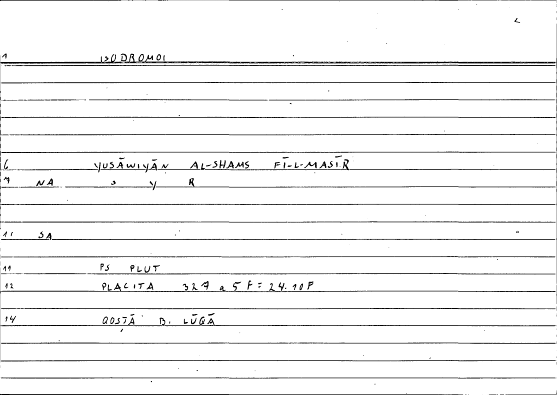 1 ISODROMOI
6 YUSĀWIYĀN AL-SHAMS FĪ-L-MASĪR
7 NA S Y R
11 SA
11 PS PLUT
12 PLACITA 327 a 5 F = 24.10 P
14 QOSṬĀ B. LŪQĀ